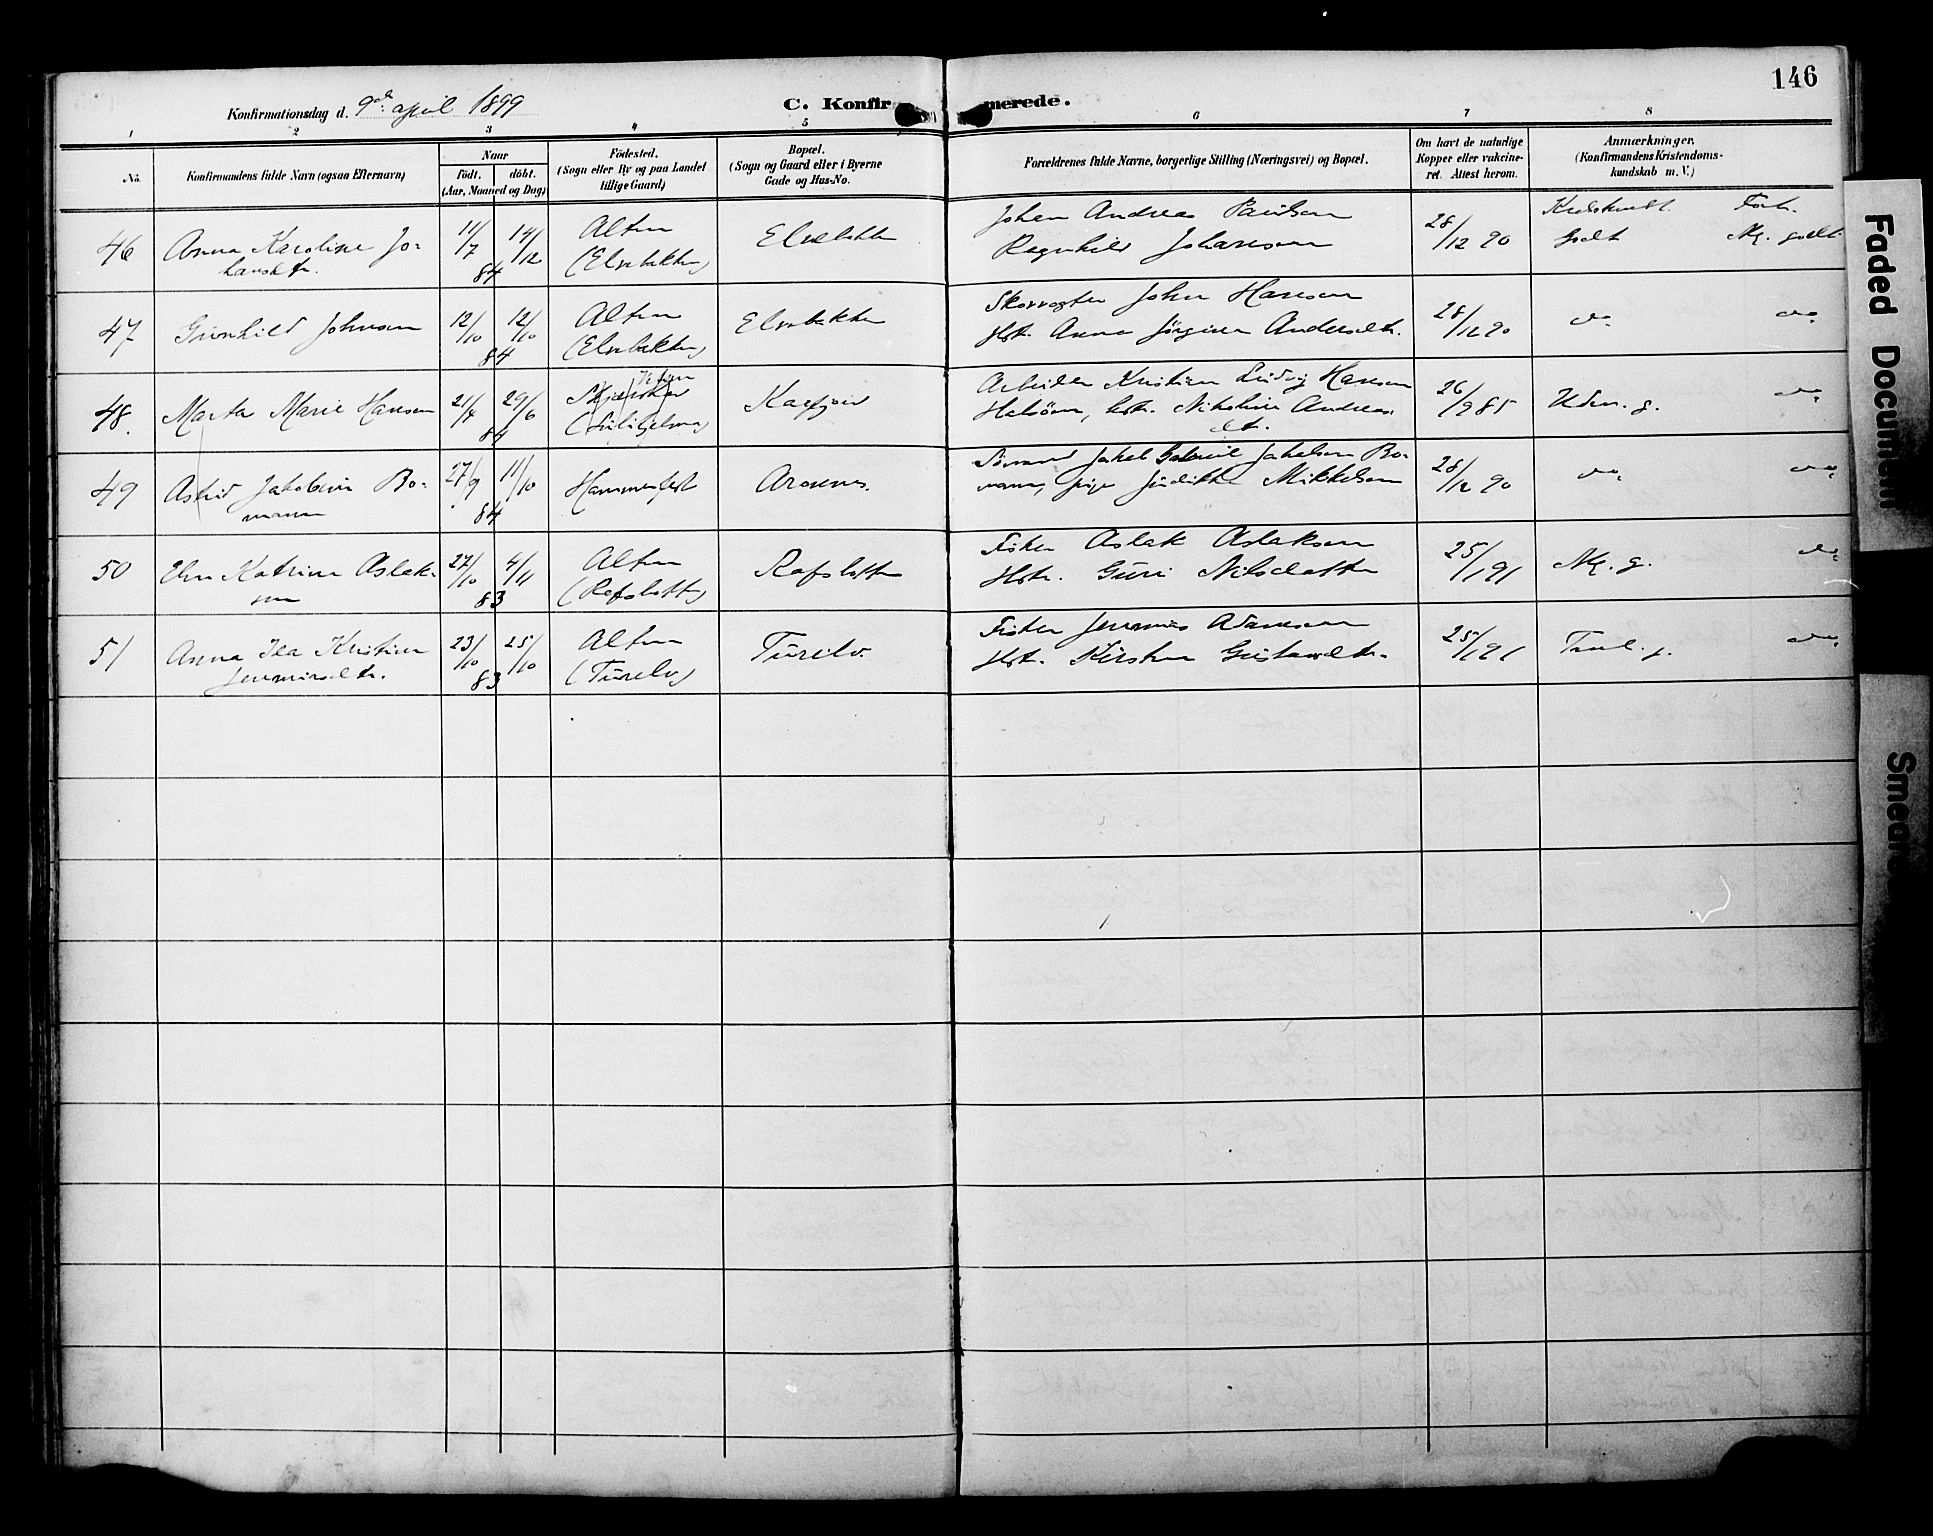 146
Konfirmationsdag d. 9de april 1899
C. Konfirmerede.
1 2 3 4 5 6 7 8
No.
Konfirmandens fulde Navn (ogsaa Efternavn)
Naar
födt. döbt.
(Aar, Maaned og Dag)
Födested.
(Sogn eller By og paa Landet
tillige Gaard)
Bopæl.
(Sogn og Gaard eller i Byerne
Gade og Hus-No.
Forældrenes fulde Navne, borgerlige Stilling (Næringsvei) og Bopæl.
Om havt de naturlige
Kopper eller vakcine-
ret. Attest herom.
Anmærkninger.
(Konfirmandens Kristendoms-
kundskab m. V.)
46 Anna Karoline Jo- 11/7 14/12 Alten Johan Andreas Paulsen 28/12 90 Kundskab. Forh.
84 (Elvebakken) Ragnhild Johansen Godt Mg. godt.
47 Gunhild Johnsen 12/10 12/10 Alten Elvebakken John Hansen 28/12 90 do do
84 (Elvebakken) Hstr. Anna Jörgine Andersdtr.
48. Marta Marie Hansen 21/4 29/6 Kaafjord Arbeider Kristian Ludvig Hansen 26/9 85 Uden. g. do
84 hstr. Nikoline Andreas-
dtr.
49 Astrid Jakobine Bo- 27/9 11/10 Hammerfest Aronnes. Jakel Gabriel Jakelsen Bo- 28/12 90 do do
mann 84 mann, pige Mikkelsen
50 Elen Katrine Aslak- 27/10 4/11 Alten Rafsbotten Fisker Aslak Aslaksen 25/1 91 Mg. g. do
sen 83 (Rafsbotten) Hstr. Guri Nilsdatter
51 Anna Ida Kristine 23/10 25/10 Alten Turelv. Fisker Jeremias Adamsen 25/1 91 Taal. g. do
Jeremiasdtr. 83 (Turelv) Hstr. Kirsten Gustavsdtr.
Faded Document
Smeared